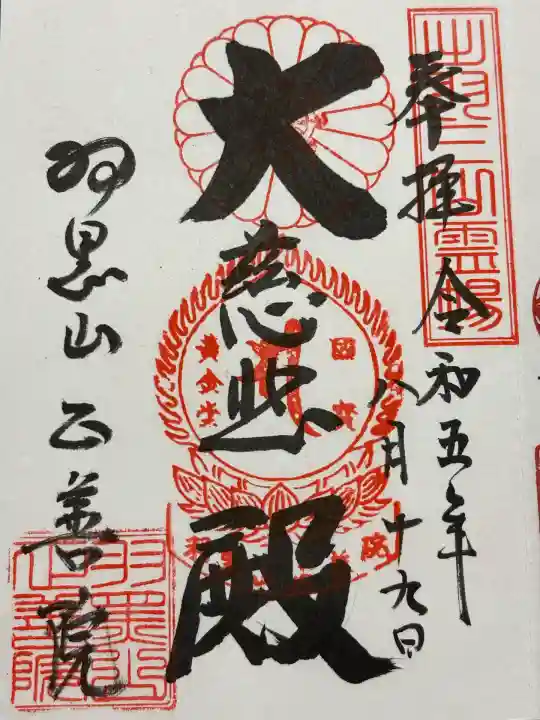 奉拝 令和五年
八月十九日
大慈悲殿
國寳
黄金堂
羽黒山 正善院